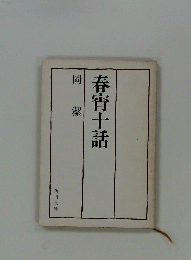 春宵十話
岡潔